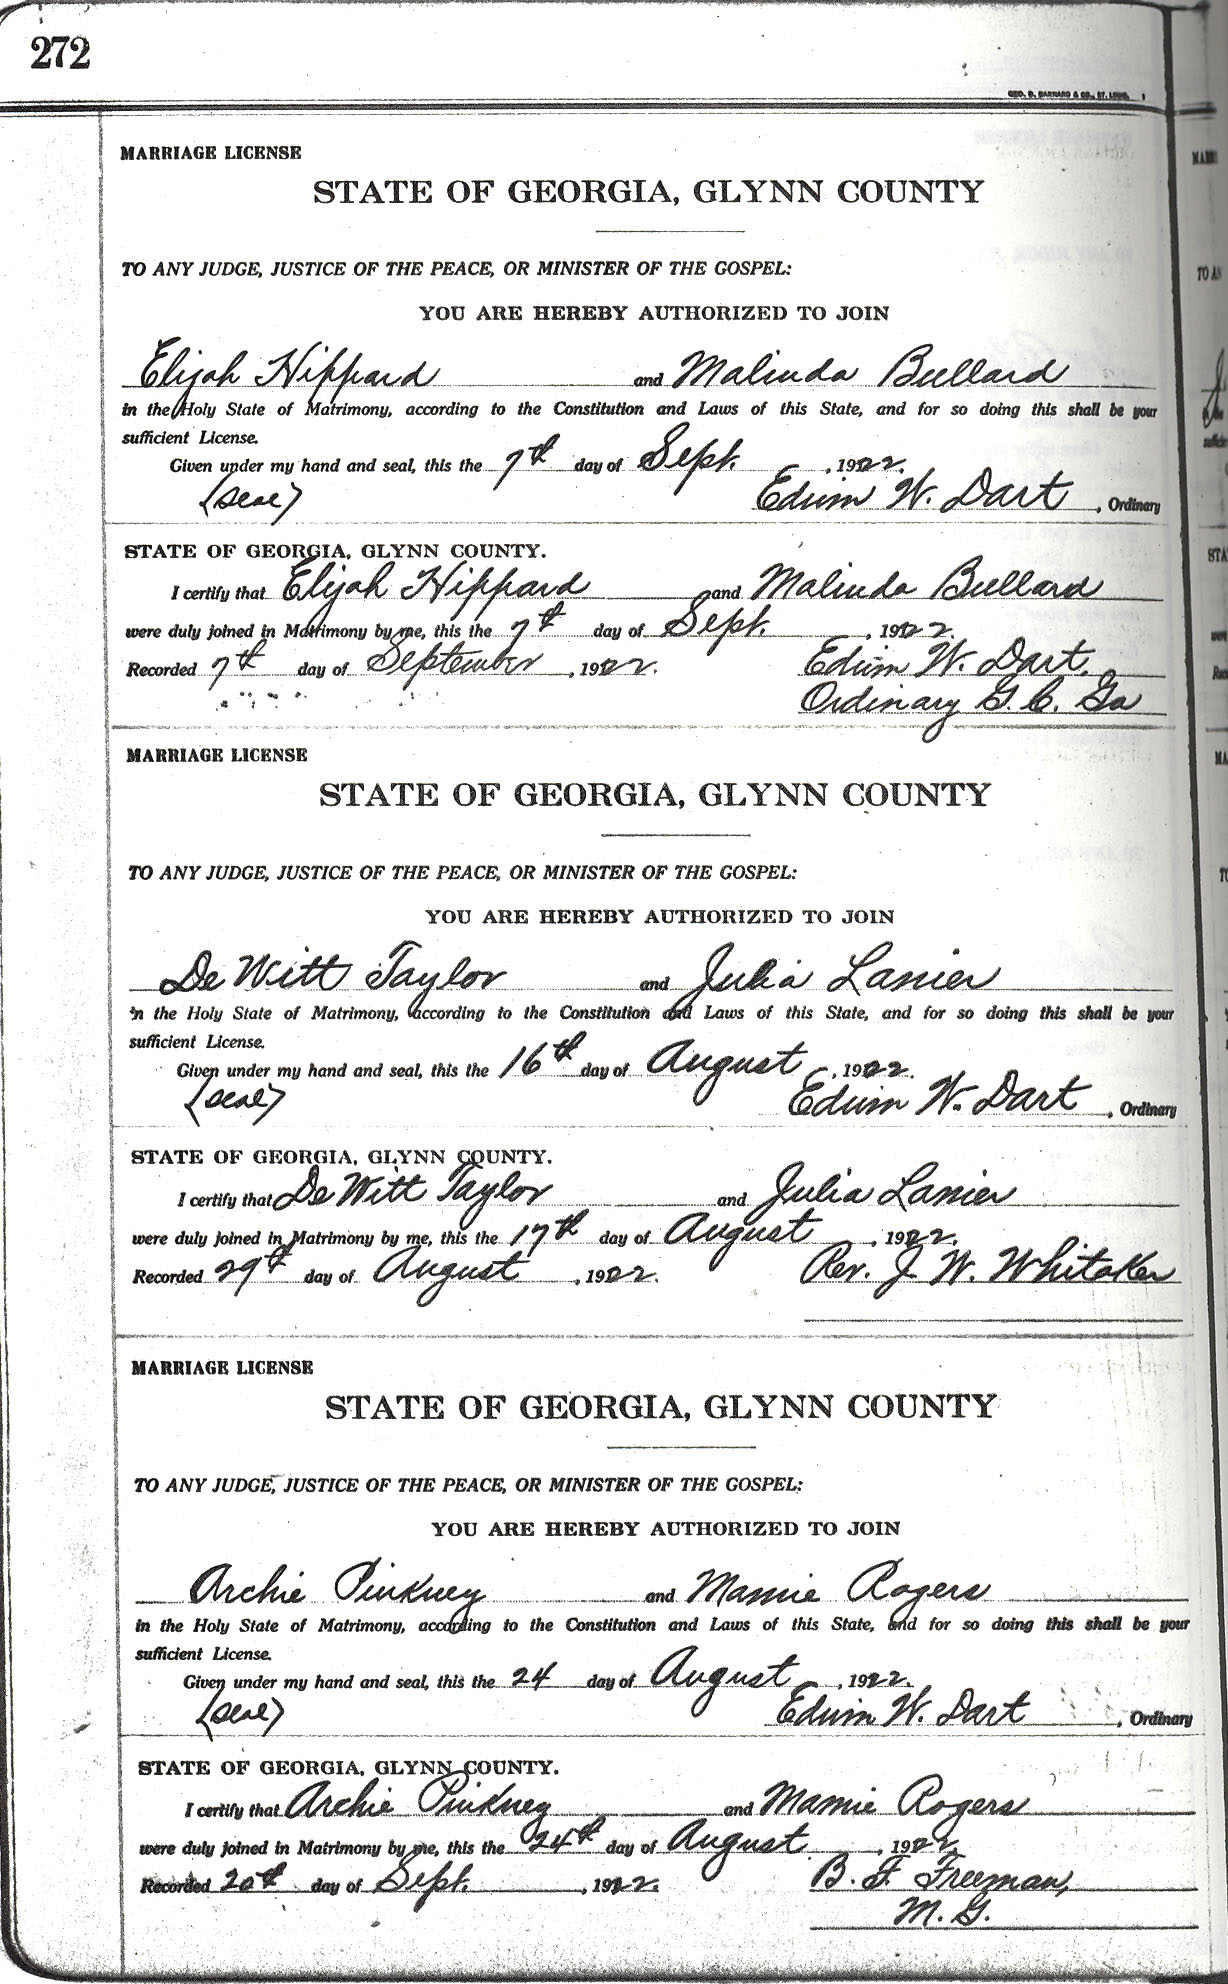 272
GEO. D. BARNARD & CO., ST. LOUIS.
MARRIAGE LICENSE
STATE OF GEORGIA, GLYNN COUNTY
TO ANY JUDGE, JUSTICE OF THE PEACE, OR MINISTER OF THE GOSPEL:
YOU ARE HEREBY AUTHORIZED TO JOIN
Elijah Hippard and Malinda Bullard
in the Holy State of Matrimony, according to the Constitution and Laws of this State, and for so doing this shall be your
sufficient License.
Given under my hand and seal, this the 7th day of Sept. , 1922.
(seal) Edwin W. Dart , Ordinary
STATE OF GEORGIA, GLYNN COUNTY.
I certify that Elijah Hippard and Malinda Bullard
were duly joined in Matrimony by me, this the 7th day of Sept. , 1922.
Recorded 7th day of September , 1922. Edwin W. Dart.
Ordinary G. C. Ga
MARRIAGE LICENSE
STATE OF GEORGIA, GLYNN COUNTY
TO ANY JUDGE, JUSTICE OF THE PEACE, OR MINISTER OF THE GOSPEL:
YOU ARE HEREBY AUTHORIZED TO JOIN
De Witt Taylor and Julia Lanier
in the Holy State of Matrimony, according to the Constitution and Laws of this State, and for so doing this shall be your
sufficient License.
Given under my hand and seal, this the 16th day of August , 1922.
(seal) Edwin W. Dart , Ordinary
STATE OF GEORGIA, GLYNN COUNTY.
I certify that De Witt Taylor and Julia Lanier
were duly joined in Matrimony by me, this the 17th day of August , 1922.
Recorded 29th day of August , 1922. Rev. J. W. Whitaker
MARRIAGE LICENSE
STATE OF GEORGIA, GLYNN COUNTY
TO ANY JUDGE, JUSTICE OF THE PEACE, OR MINISTER OF THE GOSPEL:
YOU ARE HEREBY AUTHORIZED TO JOIN
Archie Pinkney and Mamie Rogers
in the Holy State of Matrimony, according to the Constitution and Laws of this State, and for so doing this shall be your
sufficient License.
Given under my hand and seal, this the 24 day of August , 1922.
(seal) Edwin W. Dart , Ordinary
STATE OF GEORGIA, GLYNN COUNTY.
I certify that Archie Pinkney and Mamie Rogers
were duly joined in Matrimony by me, this the 24th day of August , 1922.
Recorded 20th day of Sept. , 1922. B. F. Freeman,
M. G.